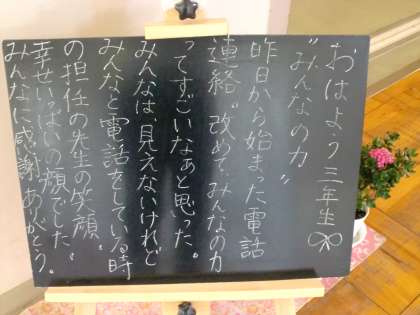 おはよう三年生
"みんなの力"
昨日から始まった電話
連絡"改めて、みんなの力
ってすごいなぁと思った。
みんなは、見えないけれど
みんなと電話をしている時
の担任の先生の笑顔〟
幸せいっぱいの顔でした〟
みんなに感謝、ありがとう。